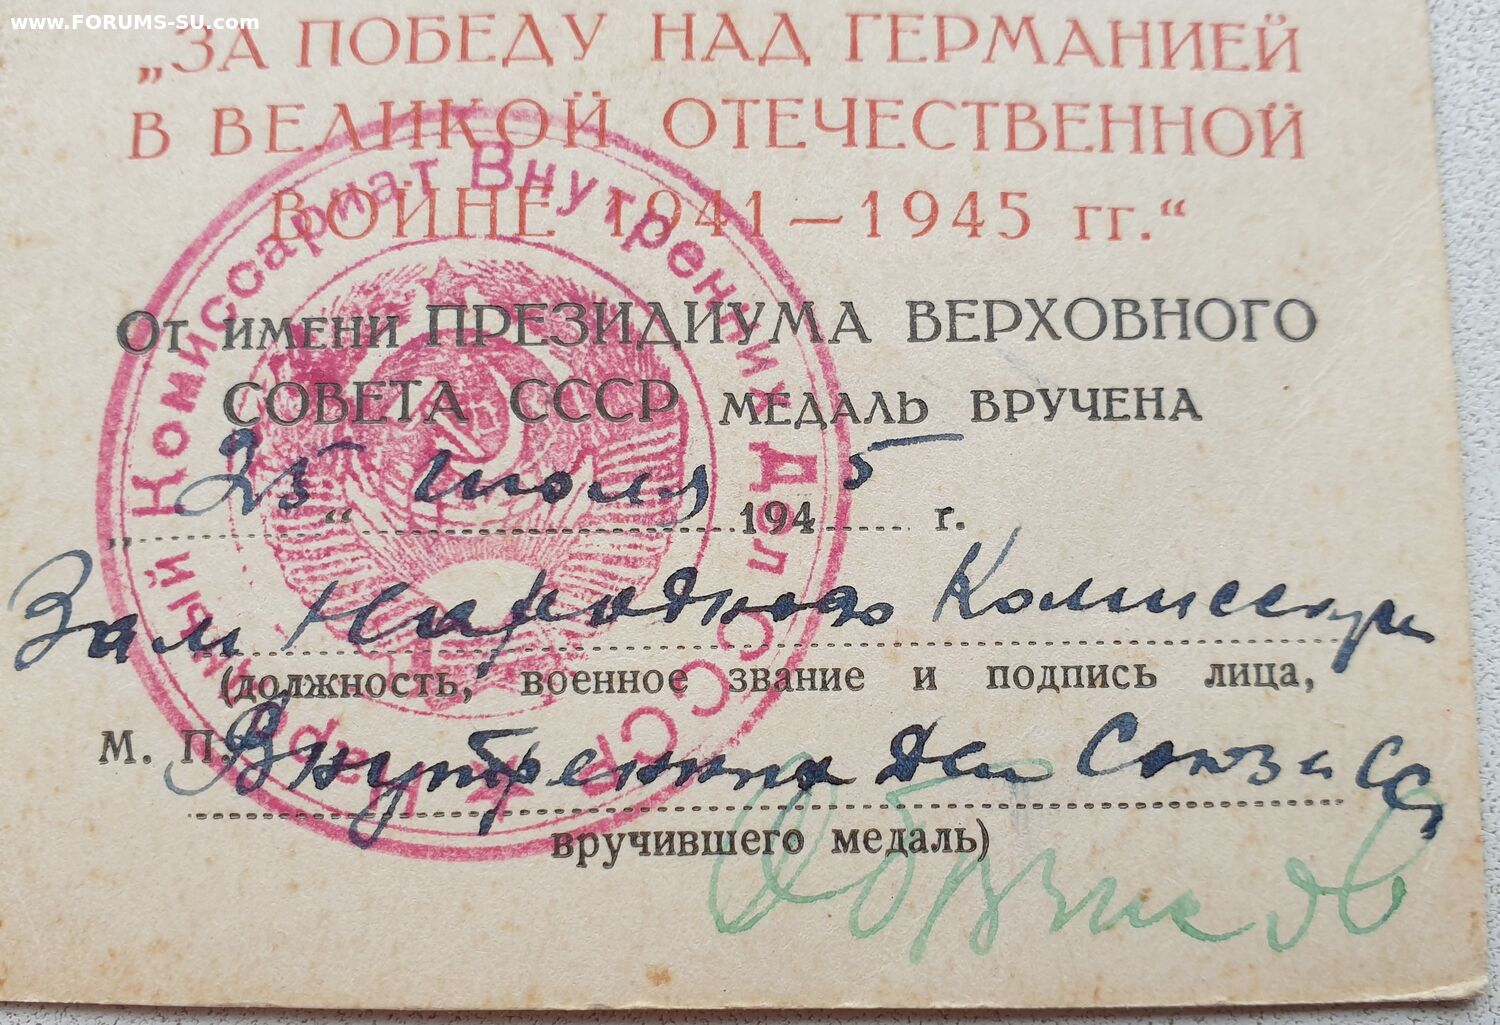 www.FORUMS-SU.com
„ЗА ПОБЕДУ НАД ГЕРМАНИЕЙ
В ВЕЛИКОЙ ОТЕЧЕСТВЕННОЙ
ВОЙНЕ 1941—1945 гг.“
От имени ПРЕЗИДИУМА ВЕРХОВНОГО
СОВЕТА СССР МЕДАЛЬ ВРУЧЕНА
„25“ июля 1945 г.
Зам Народного Комиссара
(должность, военное звание и подпись лица,
М. П. Внутренних Дел Союза ССР
вручившего медаль)
Народный Комиссариат Внутренних Дел СССР